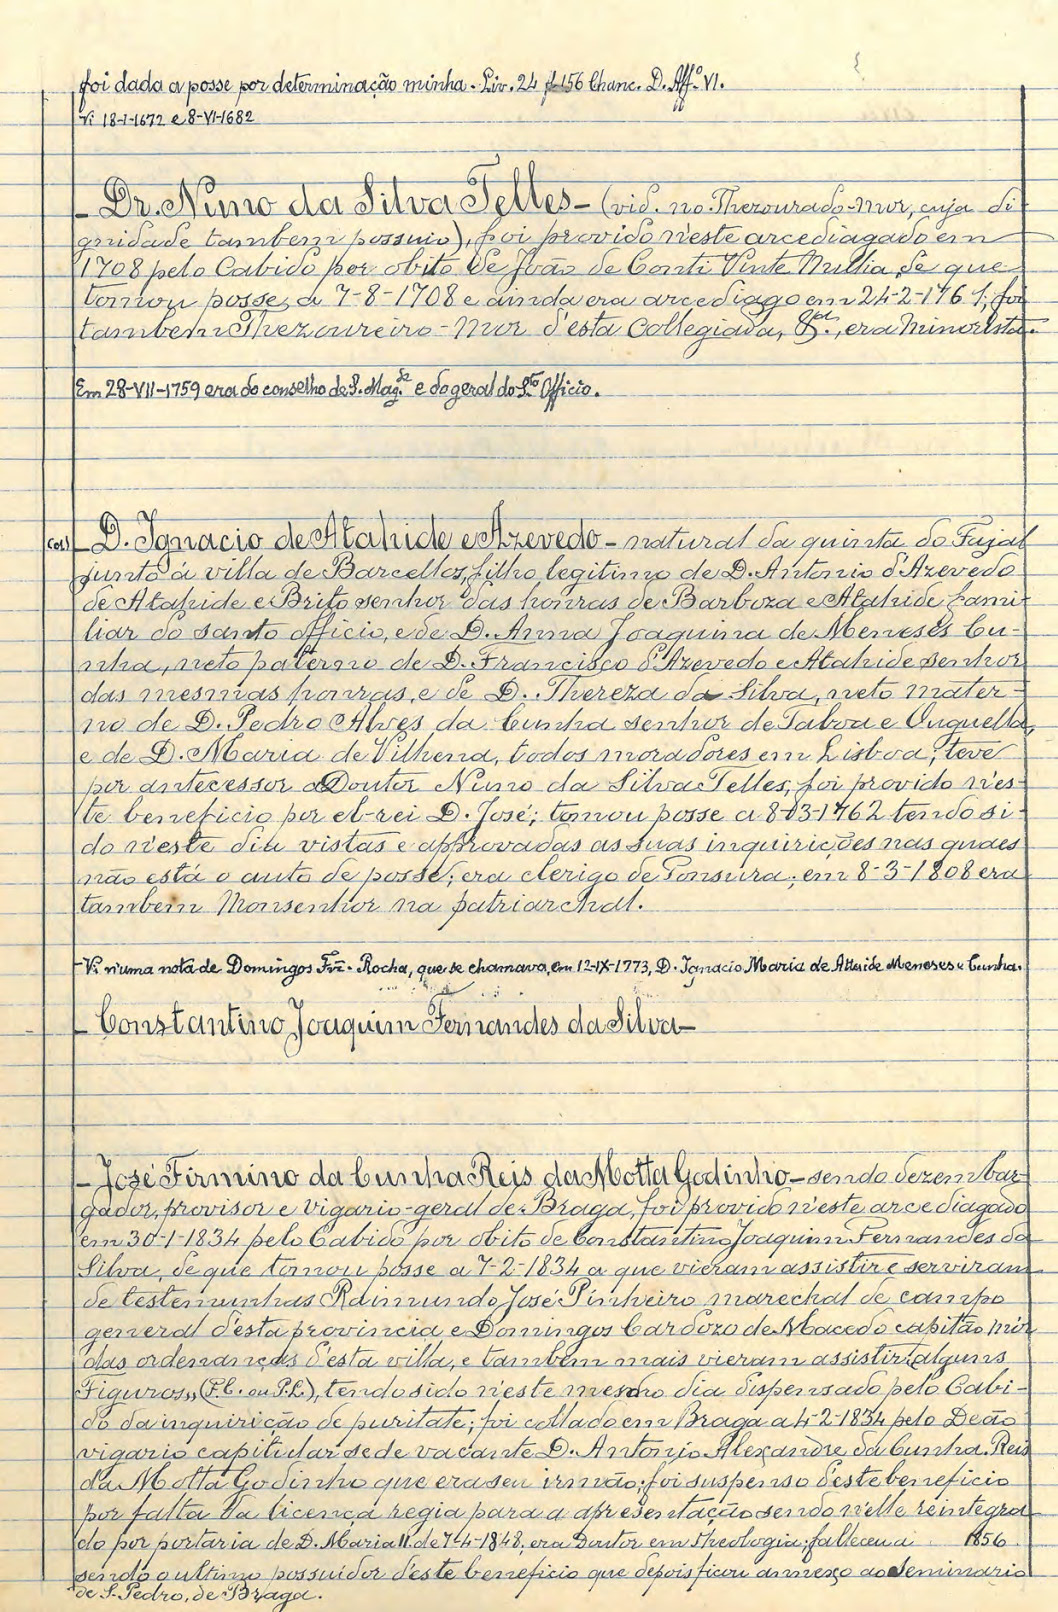 foi dada a posse por determinação minha. Liv. 24 f. 156 Chanc. D. Aff.º VI.
Vi 18-I-1672 e 8-VI-1682
- Dr. Nuno da Silva Telles - (vid. no Thezourado-Mor, cuja di-
gnidade tambem possuio), foi provido n'este arcediagado em
1708 pelo Cabido por obito de João de Conti Vinte Milia, de que
tomou posse, a 7-8-1708 e ainda era arcediago em 24-2-1761; foi
tambem Thezoureiro-Mor d'esta Collegiada, era Minorista.
Em 28-VII-1759 era do conselho de S. Mag.de e do geral do S.to Officio.
(Col.) - D. Ignacio de Atahide e Azevedo - natural da quinta do Fajal
junto á villa de Barcellos, filho legitimo de D. Antonio d'Azevedo
de Atahide e Brito senhor das honras de Barboza e Atahide fami-
liar do santo officio, e de D. Anna Joaquina de Meneses Cu-
nha, neto paterno de D. Francisco d'Azevedo e Atahide senhor
das mesmas honras, e de D. Thereza da Silva, neto mater-
no de D. Pedro Alves da Cunha senhor de Taboa e Ouguella,
e de D. Maria de Vilhena, todos moradores em Lisboa; teve
por antecessor o Doutor Nuno da Silva Telles, foi provido n'es-
te beneficio por el-rei D. José; tomou posse a 8-03-1762 tendo si-
do n'este dia vistas e approvadas as suas inquirições nas quaes
não está o auto de posse; era clerigo de Tonsura; em 8-3-1808 era
tambem Monsenhor na patriarchal.
- Vi n'uma nota de Domingos Frz. Rocha, que se chamava, em 12-IX-1773, D. Ignacio Maria de Attaide Meneses e Cunha.
- Constantino Joaquim Fernandes da Silva -
- José Firmino da Cunha Reis da Motta Godinho - sendo dezembar-
gador, provisor e vigario-geral de Braga, foi provido n'este arcediagado
em 30-1-1834 pelo Cabido por obito de Constantino Joaquim Fernandes da
Silva, de que tomou posse a 7-2-1834 a que vieram assistir e serviram
de testemunhas Raimundo José Pinheiro marechal de campo
general d'esta provincia e Domingos Cardozo de Macedo capitão mór
das ordenanças d'esta villa, e tambem mais vieram assistir "alguns
Figuros" (F.C. ou P.L.), tendo sido n'este mesmo dia dispensado pelo Cabi-
do da inquirição de puritate; foi collado em Braga a 4-2-1834 pelo Deão
vigario capitular sede vacante D. Antonio Alexandre da Cunha Reis
da Motta Godinho que era seu irmão; foi suspenso d'este beneficio
por falta da licença regia para a apresentação sendo n'elle reintegra-
do por portaria de D. Maria II de 7-4-1848, era Doutor em Theologia; falleceu a 1856
sendo o ultimo possuidor d'este beneficio que depois ficou annexo ao Seminario
de S. Pedro, de Braga.